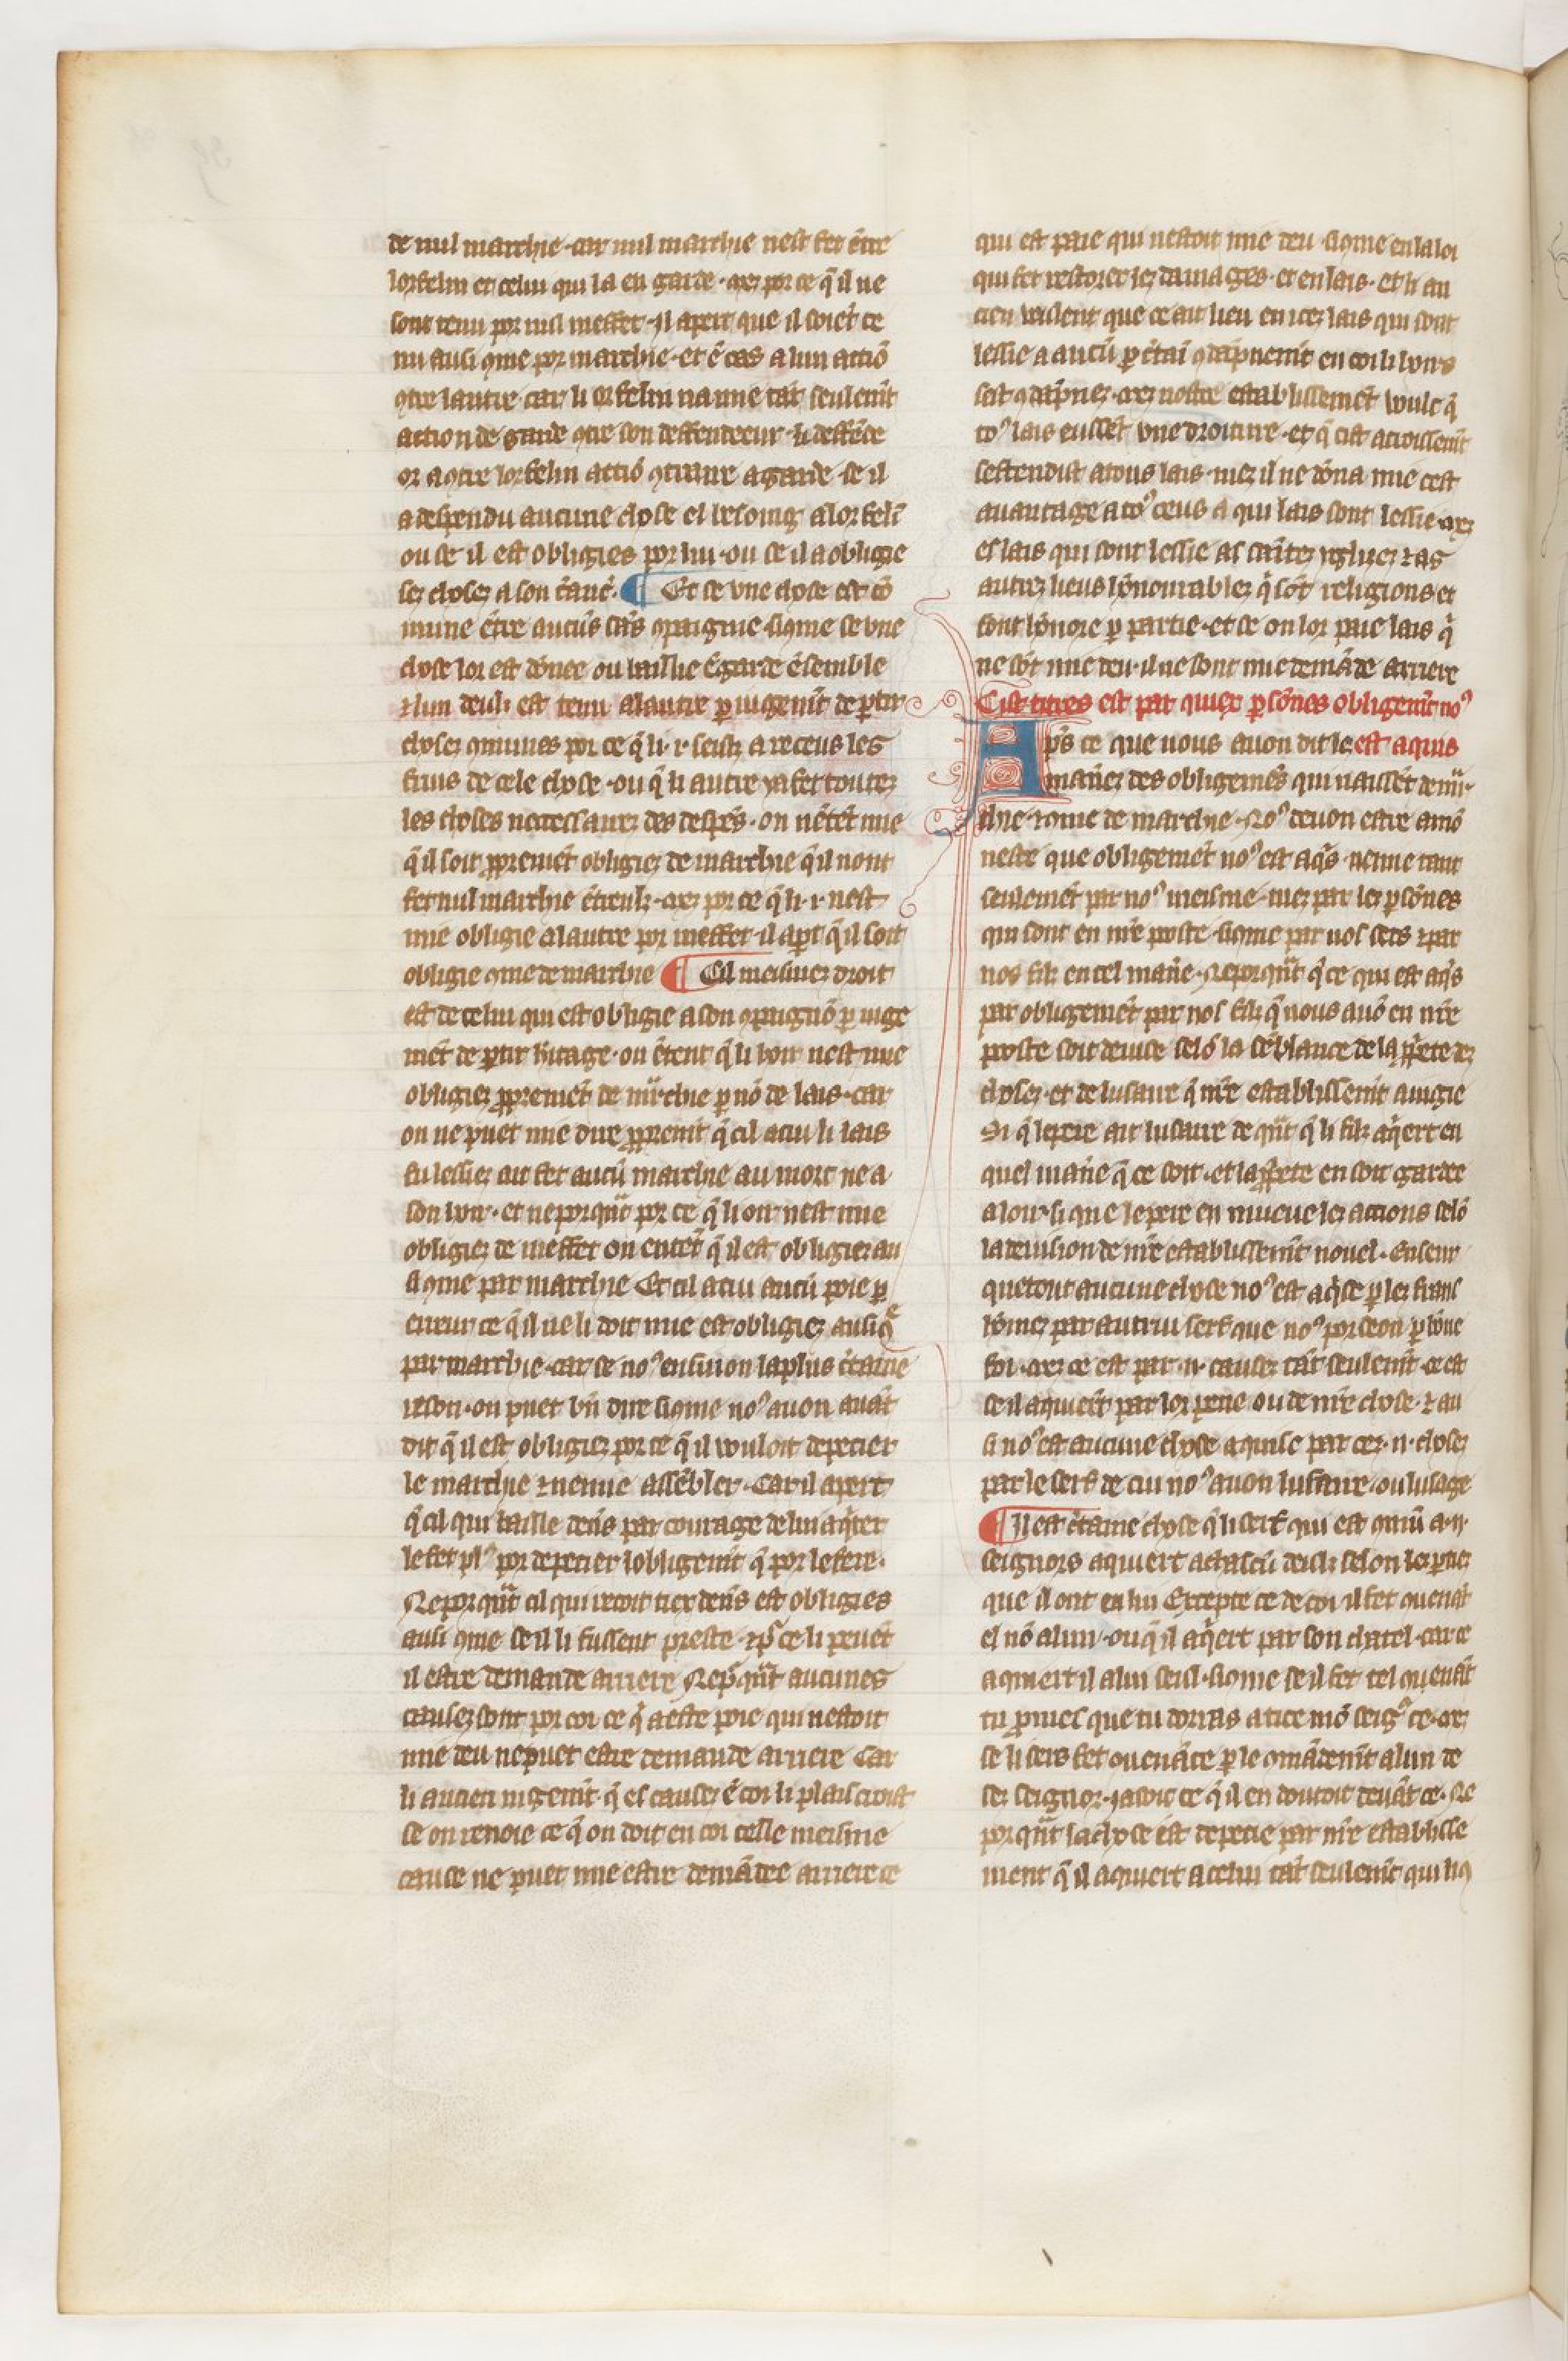 de nul marchie · car nul marchie nest fet ētre
lorfelin et celui qui la en garde · mez por ce q̄ il ne
sont tenu por nul meffet · il apert que il soiēt te
nu ausi ꝯme por marchie · et ē ces a lun actiō
ꝯtre lautre · car li orfelin na mie tāt seulemt̄
action de garde ꝯtre son deffendeeur · li deffēde
or a ꝯtre lorfelin actiō ꝯtraire a garde · se il
a despendu aucune chose el besoing a lorfelī
ou se il est obligies por lui · ou se il a obligie
sez chosez a son cr̄anc̄ · ¶ Et se vne chose est cō
mune ētre aucūs sās ꝯpaignie · si ꝯme se vne
chose lor est dōnee ou baillie ē garde ēsemble
⁊ lun deulz est tenu a lautre ꝑ iugemt̄ de ꝑtir
chosez ꝯmunes por ce q̄ li · i · seulz a receus les
fruis de cele chose · ou q̄ li autre ya fet toutez
les choses neccessairez des despēs · on nētēt mie
q̄ il soit ꝓpremēt obligiez de marchie q̄ il nont
fet nul marchie ētreulz · mez por ce q̄ li · i · nest
mie obligie a lautre por meffet · il aꝑt q̄ il soit
obligie ꝯme de marchie ¶ Cil meismez droit
est de celui qui est obligie a son ꝯpaignō ꝑ iuge
mēt de ꝑtir h̄itage · on ētent q̄ li hoir nest mie
obligiez ꝓpremēt de mr̄chie ꝑ nō de lais · car
on ne puet mie dire ꝓpremt̄ q̄ cil a cui li lais
fu lessiez ait fet aucū marchie au mort ne a
son hoir · et neporquāt por ce q̄ li oir nest mie
obligiez de meffet on entēt q̄ il est obligiez au
si ꝯme par marchie Et cil a cui aucū poie ꝑ
erreur ce q̄ il ne li doit mie est obligiez ausi q̄
par marchie · car se noꝰ ensuion la plus c̄taine
reson · on puet bn̄ dire si ꝯme noꝰ auon auāt
dit q̄ il est obligiez por ce q̄ il vouloit depecier
le marchie ⁊ nemie assēbler · Car il apert
q̄ cil qui baille den̄s par courage de lui aq̄ter
le fet plꝰ por depecier lobligemt̄ q̄ por le fere ·
Neporquāt cil qui recoit tiex den̄s est obligies
ausi ꝯme se il li fussent preste · ⁊ pͬ ce li peuēt
il estre demande arriere Nepͬquāt aucunes
causez sont por coi ce q̄ a este poie qui nestoit
mie deu ne puet estre demande arriere Car
li ancien iugerēt · q̄ es causez ē coi li plais croist
se on renoie ce q̄ on doit en coi celle meisme
cause ne puet mie estre demādee arriere ce
qui est paie qui nestoit mie deu · si ꝯme en la loi
qui fet restorer lez damages · et en lais · et li an
cien veulent que ce ait lieu en icez lais qui sont
lessie a aucū ꝑ c̄tai ꝯdāpnemt̄ en coi li hoirs
seit ꝯdāpnez · mez nostre establissemēt voult q̄
toꝰ lais eussēt vne droiture · et q̄ cist acroissemt̄
sestendist a tous lais · mez il ne dōna mie cest
auantage a toꝰ ceus a qui lais sont lessie · mez
es lais qui sont lessie as sait̄ez ygliez ⁊ as
autrez lieus hōnourablez q̄ sōt religions et
sont hōnore ꝑ partie · et se on lor paie lais q̄
ne sōt mie deu · il ne sont mie demāde arriere
Cist titres est par quiex ꝑsōnes obligemt̄ noꝰ
Apͬs ce que nous auon dit lez est aquis
man̄ez des obligemēs qui naissēt de mr̄
chie · ⁊ ꝯme de marchie · Noꝰ deuon estre amō
neste que obligemēt noꝰ est aq̄s · nemie tant
seulemēt par noꝰ meisme · mez par lez ꝑsōnes
qui sont en nr̄e poste · si ꝯme par nos sers ⁊ par
nos filz en tel man̄e · Neporquāt q̄ ce qui est aq̄s
par obligemēt par nos filz q̄ nous auō en nr̄e
poste soit deuise selō la sēblance de la ꝓp̄ete dez
chosez · et de lusaire q̄ nr̄e establissemt̄ a iugie
Si q̄ le pere ait lusaire de quāt q̄ li filz aq̄ert en
quel man̄e q̄ ce soit · et la ꝓp̄ete en soit gardee
a loir · si que le pere en mueue lez actions selō
la deuision de nr̄e establissemt̄ nouel · Enseur
quetout aucune chose noꝰ est aq̄se ꝑ lez franc
hōmez par autrui serf que noꝰ porseon ꝑ bōne
foi · mez ce est par · ii · causez tāt seulemt̄ · ce est
se il aquiert par lor peine ou de nr̄e chose · ⁊ au
si noꝰ est aucune chose aquise par cez · ii · chosez
par le serf de cui noꝰ auon lusaire · ou lusage
¶ Il est c̄taine chose q̄ li serf qui est ꝯmū a · ii ·
seignors aquiert a chascū deulz selon lez ꝑties
que il ont en lui Excepte ce de coi il fet ꝯuenāt
el nō a lun · ou q̄ il aq̄ert par son chatel · car ce
aquiert il a lui seul · si ꝯme se il fet tel ꝯuenāt
tu ꝓmes que tu dorras a tice mō seigͬ ce · mez
se li sers fet ꝯuenāce ꝑ le ꝯmādemt̄ a lun de
sez seignor · ia soit ce q̄ il en doutoit deuāt ce · Ne
porquāt la chose est depecie par nr̄e establisse
ment q̄ il aquiert a celui tāt seulemt̄ qui li ꝯ